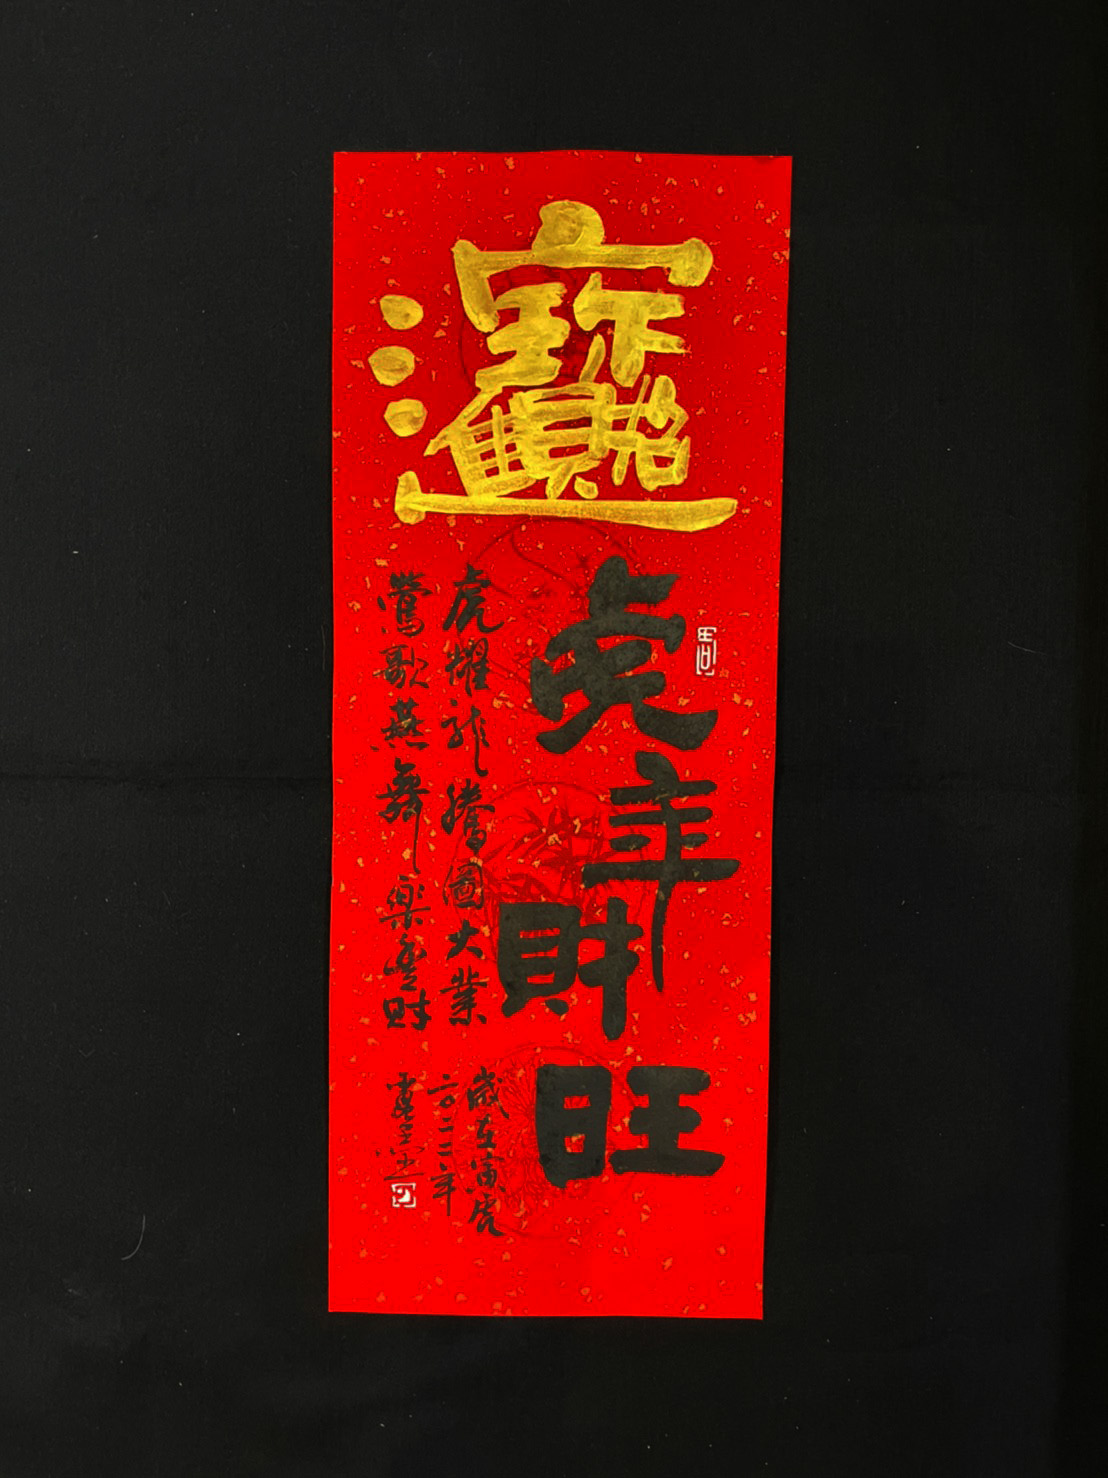 招財進寶
虎年財旺
虎耀龍騰圖大業
鶯歌燕舞樂豐財
歲在寅虎
二〇二二年